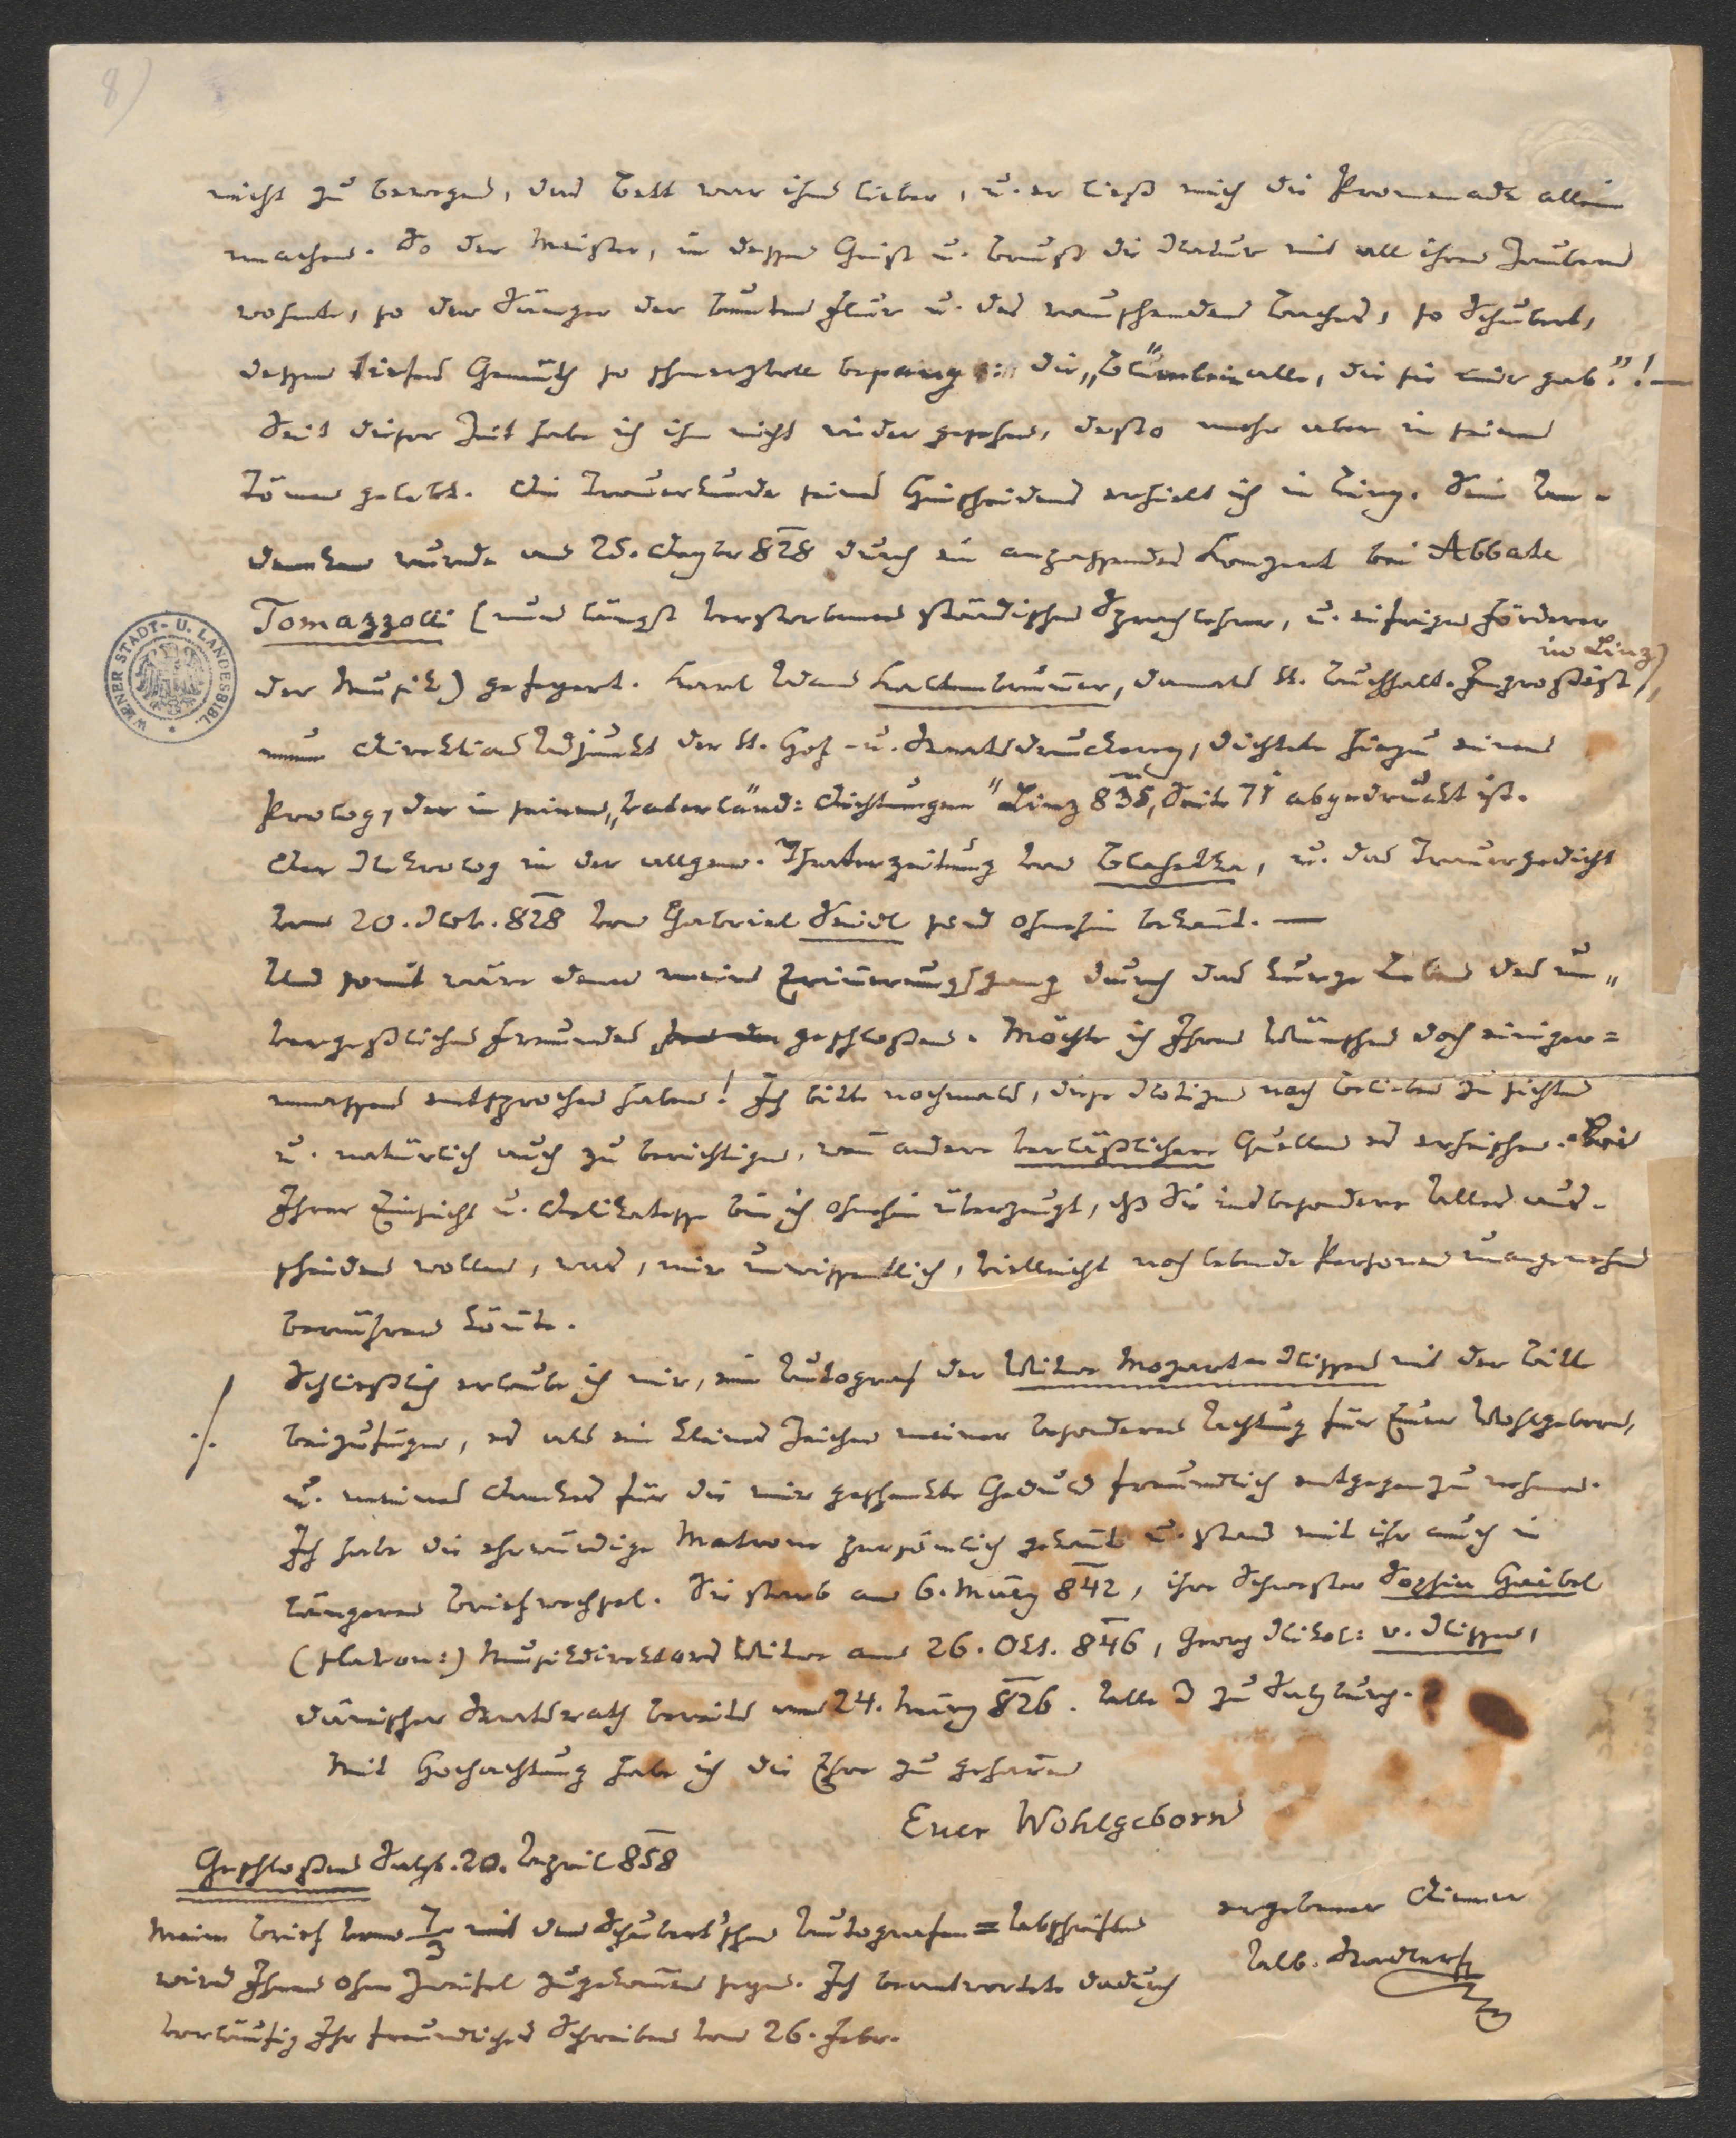 8)
nicht zu bewegen, das Bett war ihm lieber, u. er ließ mich die Promenade allein
machen. So der Meister, in dessen Geist u. Brust die Natur mit all ihren Zaubern
wohnte, so der Sänger der bunten Flur u. des rauschenden Baches, so Schubert,
dessen tiefes Gemüth so schmerzvoll besang: die „Blümlein alle, die sie mir gab"! —
Seit dieser Zeit habe ich ihn nicht wieder gesehen, desto mehr aber in seinen
Tönen gelebt. Die Trauerkunde seines Hinscheidens erhielt ich in Linz. Sein An-
denken wurde am 25. Dezbr 828 durch ein anpassendes Konzert bei Abbate
Tomazzolli (nun längst verstorbenen ständischen Sprachlehrer, u. eifrigen Förderer
der Musik) gefeyert. Karl Adam Kaltenbrunner, damals k. Buchhalt. Ingroßist,
in Linz)
nun Direktions Adjunkt der k. Hof- u. Staatsdruckerey, dichtete hiezu einen
Prolog, der in seinen „vaterländ: Dichtungen" Linz 835, Seite 71 abgedruckt ist.
Der Nekrolog in der allgem. Theaterzeitung von Blahetka, u. das Trauergedicht
vom 20. Nov. 828 von Gabriel Seidl sind ohnehin bekannt. —
Und somit wäre denn meine Erinnerungsgang durch das kurze Leben des un-
vergeßlichen Freundes geschloßen. Möchte ich Ihren Wünschen doch einiger=
massen entsprochen haben! Ich bitte nochmals, diese Notizen nach Belieben zu sichten
u. natürlich auch zu berichtigen, wenn andere verläßlichere Quellen es erheischen. Bei
Ihrer Einsicht u. Delikatesse bin ich ohnehin überzeugt, dß Sie insbesondere Alles aus-
scheiden wollen, was, mir unwissentlich, vielleicht noch lebende Personen unangenehm
berühren könnte.
Schließlich erlaube ich mir, ein Autograf der Witwe Mozart-Nissen mit der Bitte
./. beizufügen, es als ein kleines Zeichen meiner besonderen Achtung für Euer Wohlgeboren,
u. meines Dankes für die mir geschenkte Geduld freundlich entgegenzunehmen.
Ich habe die ehrwürdige Matrone persönlich gekannt u. stand mit ihr auch in
längerem Briefwechsel. Sie starb am 6. März 842, ihre Schwester Sophie Haibel
Musikdirektors Witwe am 26. Okt. 846, Georg Nikol: v. Nissen,
dänischer Staatsrath bereits am 24. März 826. Alle 3 zu Salzburg.
Mit Hochachtung habe ich die Ehre zu geharren
Euer Wohlgeborn
Geschloßen Salzb. 20. April 858
ergebener Diener
Alb. Stadler
Meine Brief vom den Schubert'schen Autografen = Abschriften
wird Ihnen ohne Zweifel zugekommen seyn. Ich beantwortete dadurch
vorläufig Ihr freundliches Schreiben vom 26. Febr.
WIENER STADT- U. LANDESBIBL.